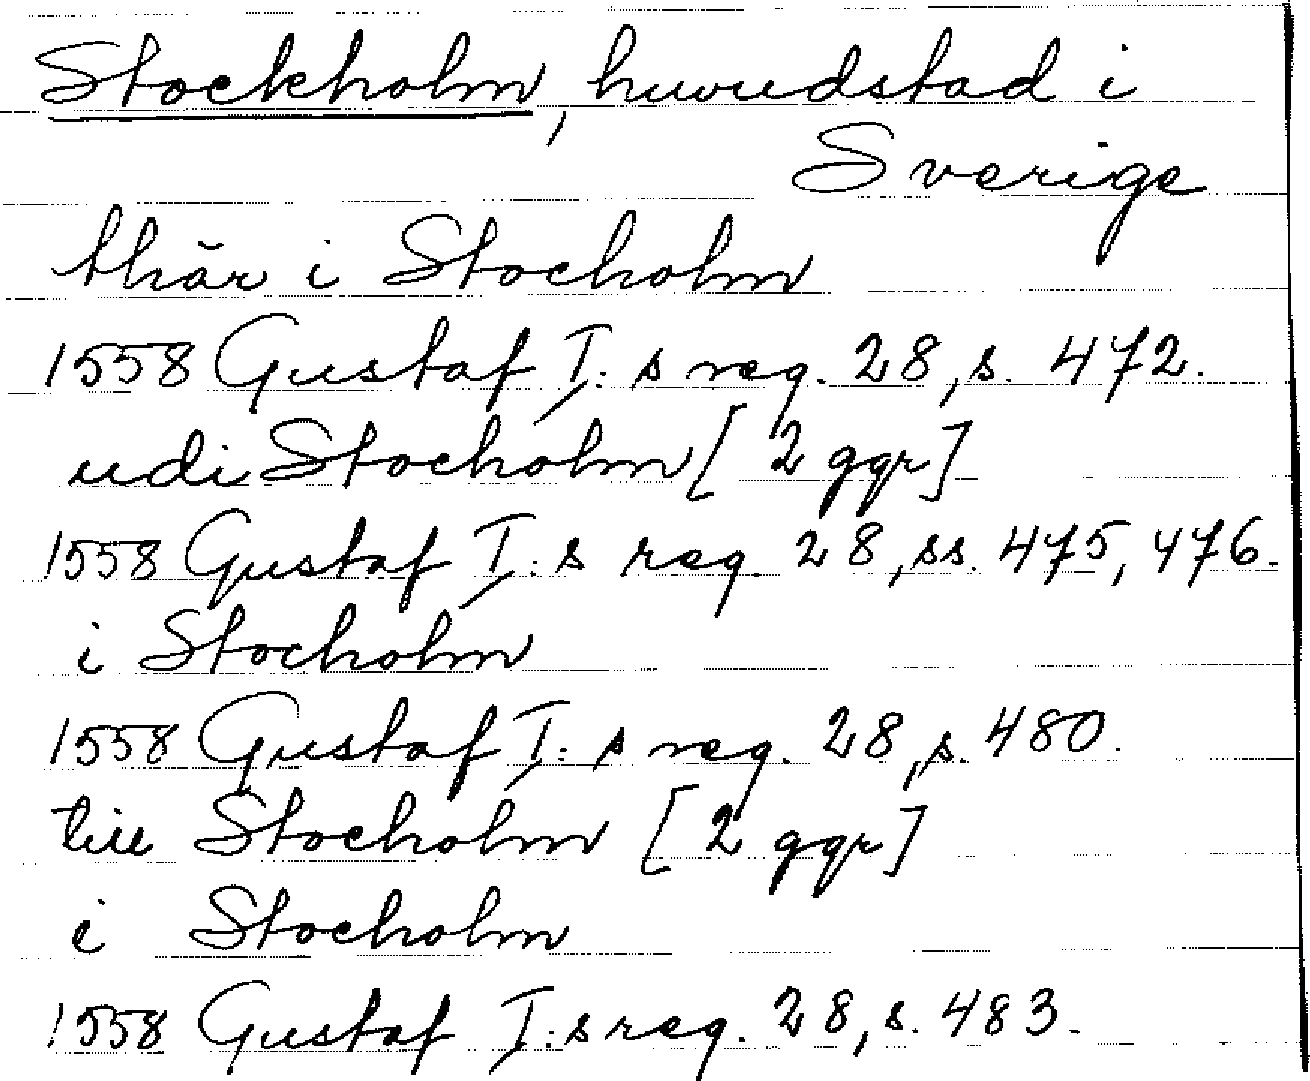 Stockholm, huvudstad i
Sverige
thär i Stocholm
1558 Gustaf I:s reg. 28, s. 472.
udi Stocholm [2 ggr]
1558 Gustaf I:s reg. 28, ss. 475, 476.
i Stocholm
1558 Gustaf I:s reg. 28, s. 480.
till Stocholm [2 ggr]
i Stocholm
1558 Gustaf I:s reg. 28, s. 483.